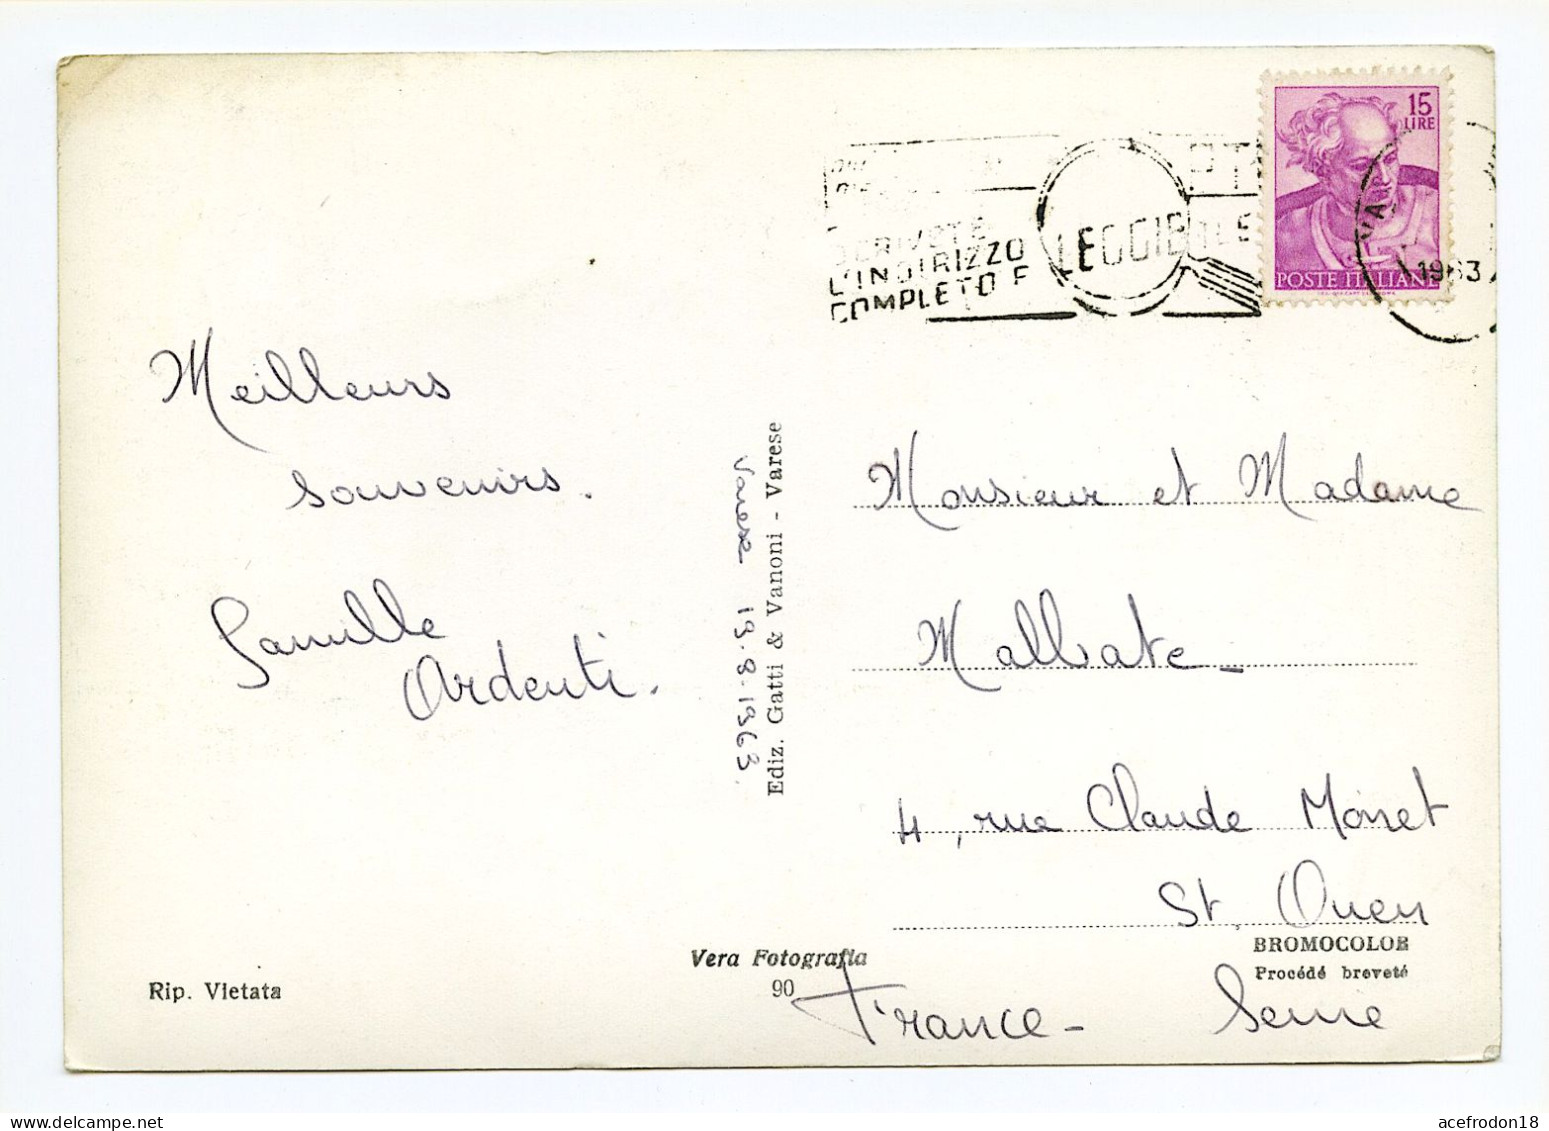 15
LIRE
POSTE ITALIANE
1963
SCRIVETE
L'INDIRIZZO
COMPLETO E
LEGGIBILE
Meilleurs
souvenirs.
Famille
Ardenti.
Varese 19.8.1963.
Ediz. Gatti & Vanoni - Varese
Monsieur et Madame
Malbate -
4, rue Claude Monet
St Ouen
France - Seine
BROMOCOLOR
Procédé breveté
Vera Fotografia
90
Rip. Vietata
acefrodon18